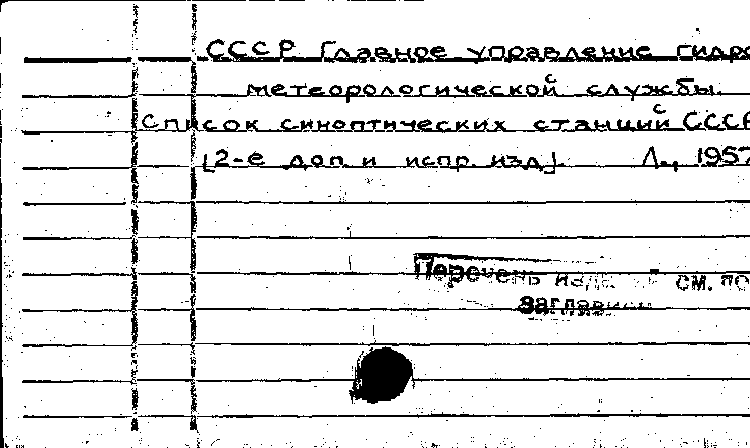 СССР Главное управление гидро
метеорологической службы.
Список синоптических станций СССР
[2-е доп. и испр. изд.]. Л., 1957
Перечень см. по